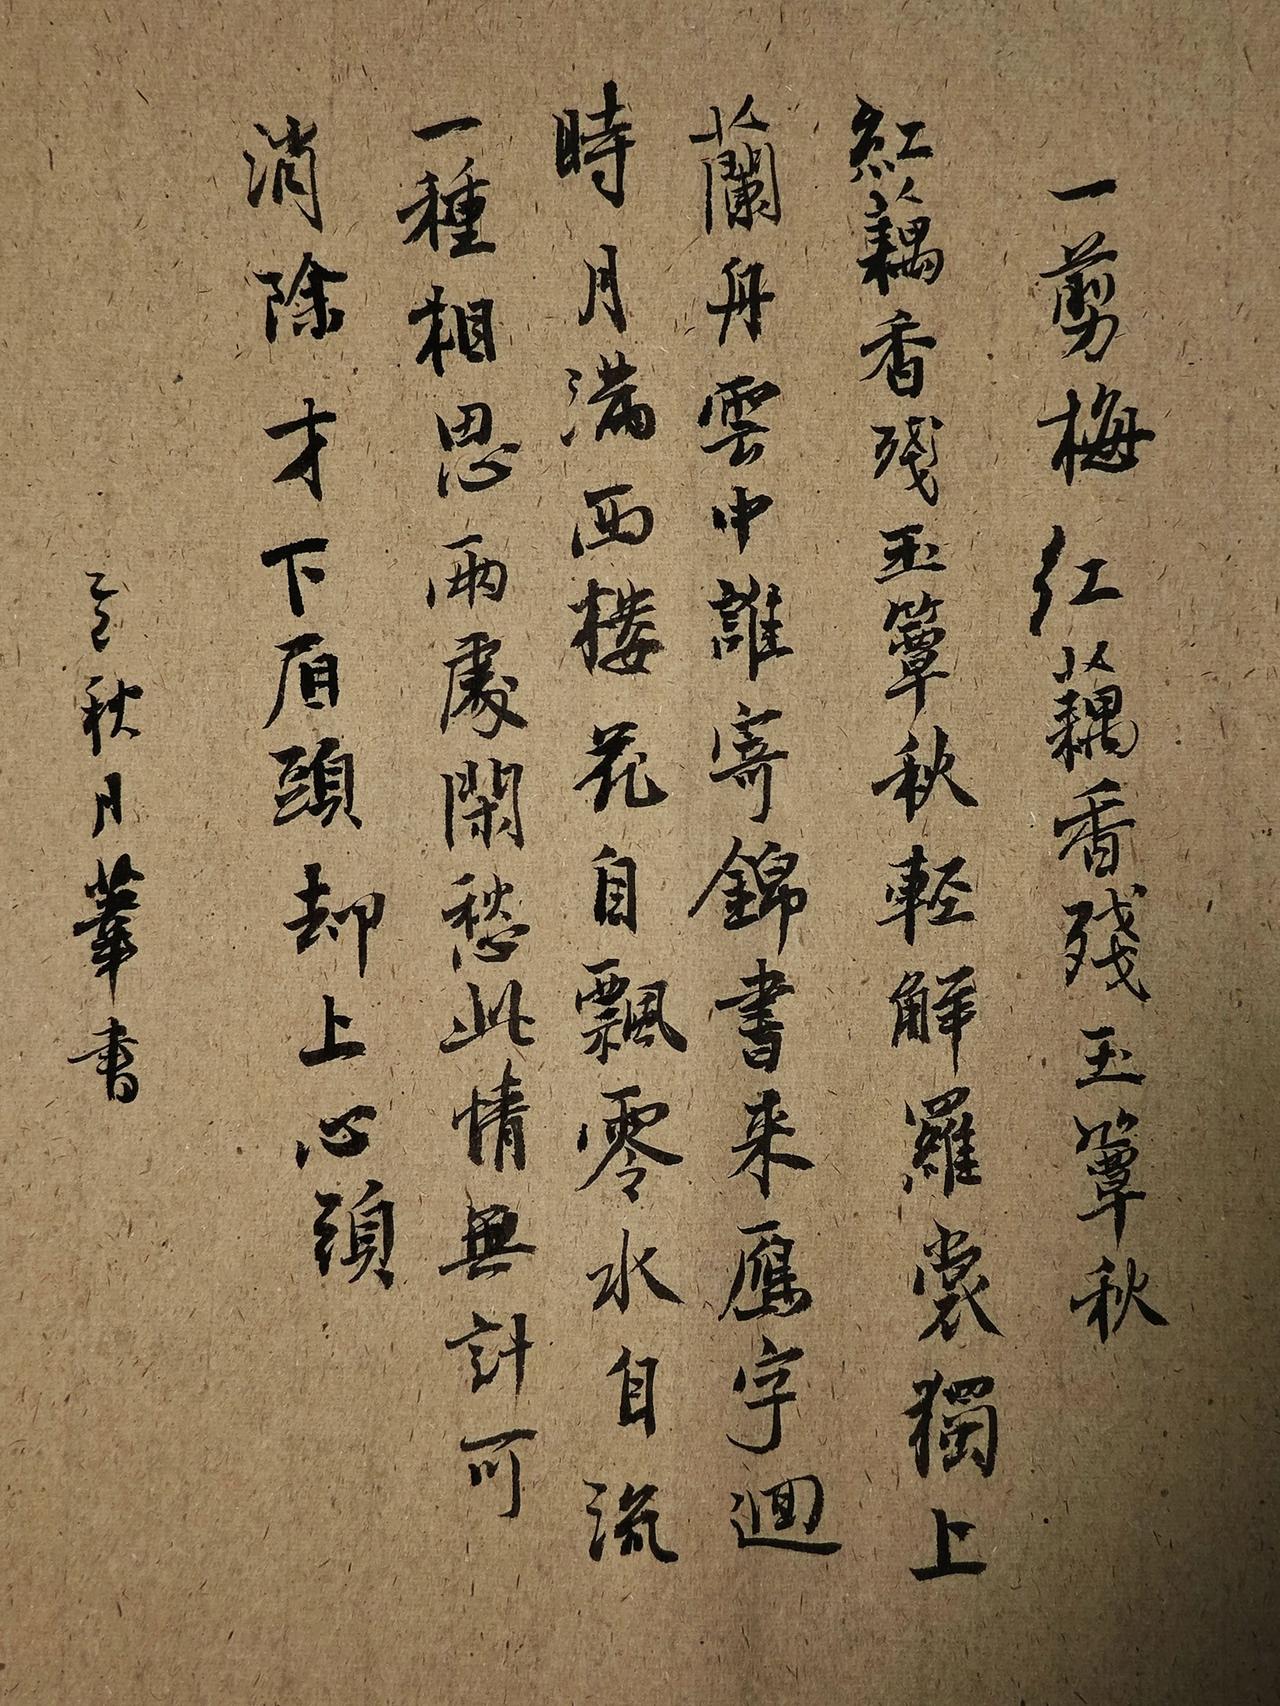 一剪梅 红藕香残玉簟秋
紅藕香残玉簟秋輕解羅裳獨上
蘭舟雲中誰寄錦書来雁字迴
時月满西楼花自飄零水自流
一種相思兩處閑愁此情無計可
消除才下眉頭却上心頭
秋月 書